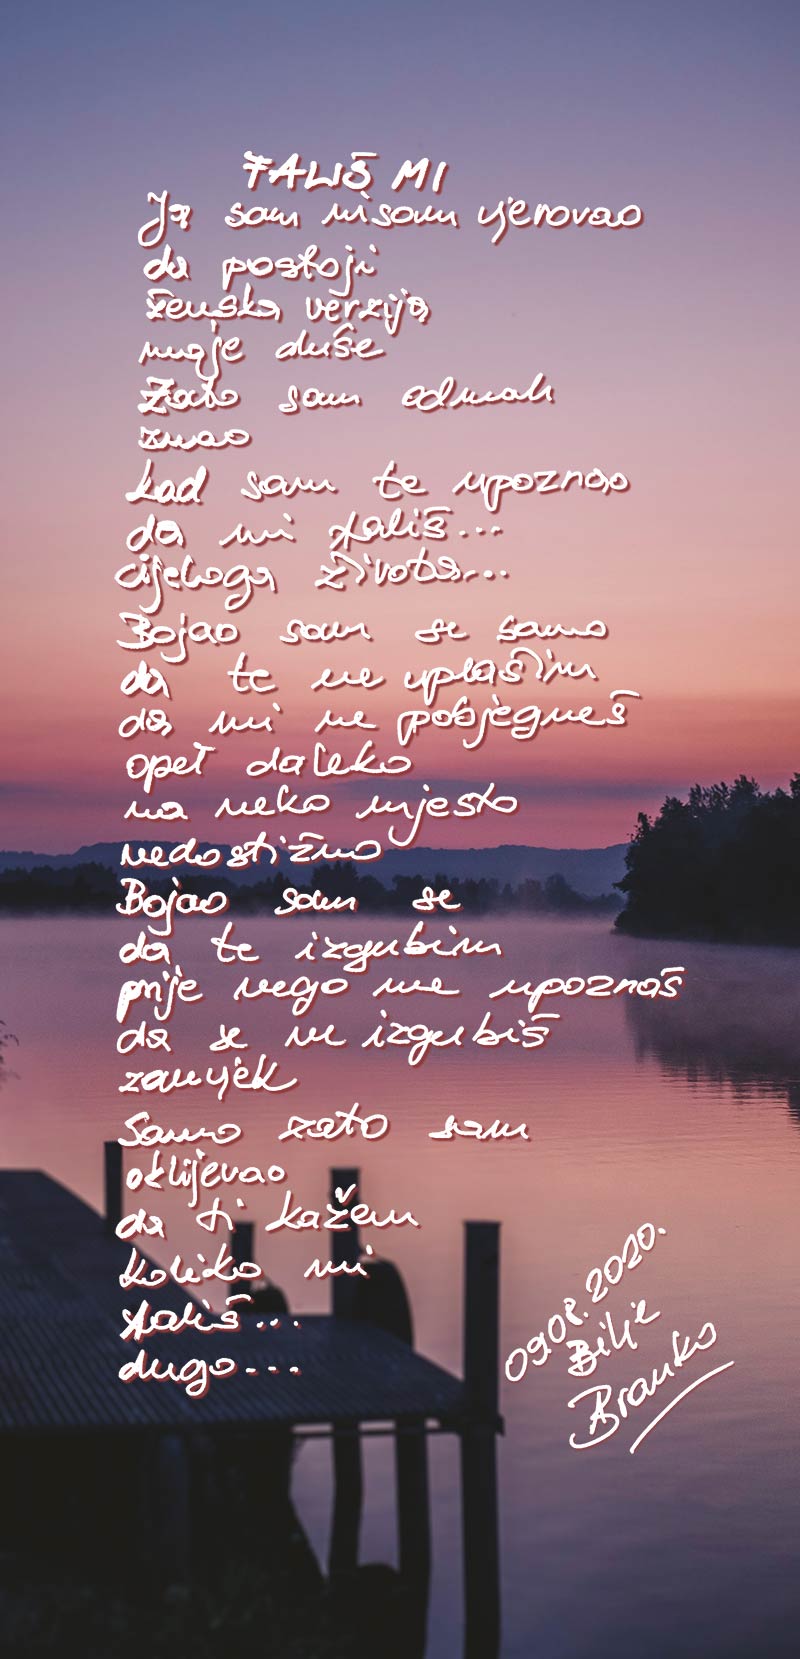 FALIŠ MI
Ja sam nisam vjerovao
da postoji
ženska verzija
moje duše
Zato sam odmah
znao
kad sam te upoznao
da mi fališ...
cijeloga života...
Bojao sam se samo
da te ne uplašim
da mi ne pobjegneš
opet daleko
na neko mjesto
nedostižno
Bojao sam se
da te izgubim
prije nego me upoznaš
da se ne izgubiš
zauvjek
Samo zato sam
oklijevao
da ti kažem
koliko mi
fališ...
dugo...
09.08.2020.
Bilje
Branko